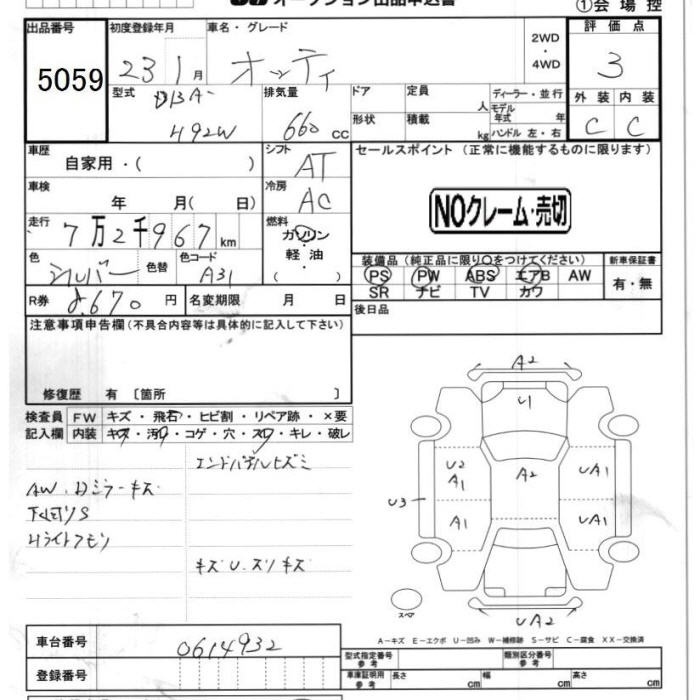 オークション出品申込書
①会場控
出品番号
5059
初度登録年月
23 1月
車名・グレード
オッティ
2WD
・
4WD
評価点
3
型式
DBA-
H92W
排気量
660 cc
ドア
定員
人
ディーラー・並行
モデル年式 年
形状
積載
kg
ハンドル 左・右
外装
C
内装
C
車歴
自家用・( )
シフト
AT
セールスポイント (正常に機能するものに限ります)
NOクレーム・売切
車検
年 月( 日)
冷房
AC
走行
7万2千967km
燃料
ガソリン
・
軽油
( )
色
シルバー
色替
色コード
A31
装備品 (純正品に限り○をつけてください)
PS PW ABS エアB AW
SR ナビ TV カワ
新車保証書
有・無
R券
8,670円
名変期限 月 日
後日品
注意事項申告欄(不具合内容等は具体的に記入して下さい)
修復歴 有 〔箇所 〕
検査員
記入欄
FW キズ・飛石・ヒビ割・リペア跡・×要
内装 キズ・汚れ・コゲ・穴・スレ・キレ・破レ
エンドパネルヒズミ
AW、Dミラーキズ
下廻りS
Hライトクモリ
キズU、スリキズ
A2
U1
U2
A1
A2
UA1
U3
A1
UA1
スペア
UA2
A-キズ E-エクボ U-凹み W-補修跡 S-サビ C-腐食 XX-交換済
車台番号
0614932
登録番号
型式指定番号
参考
類別区分番号
参考
車庫証明用
参考
長さ cm
幅 cm
高さ cm